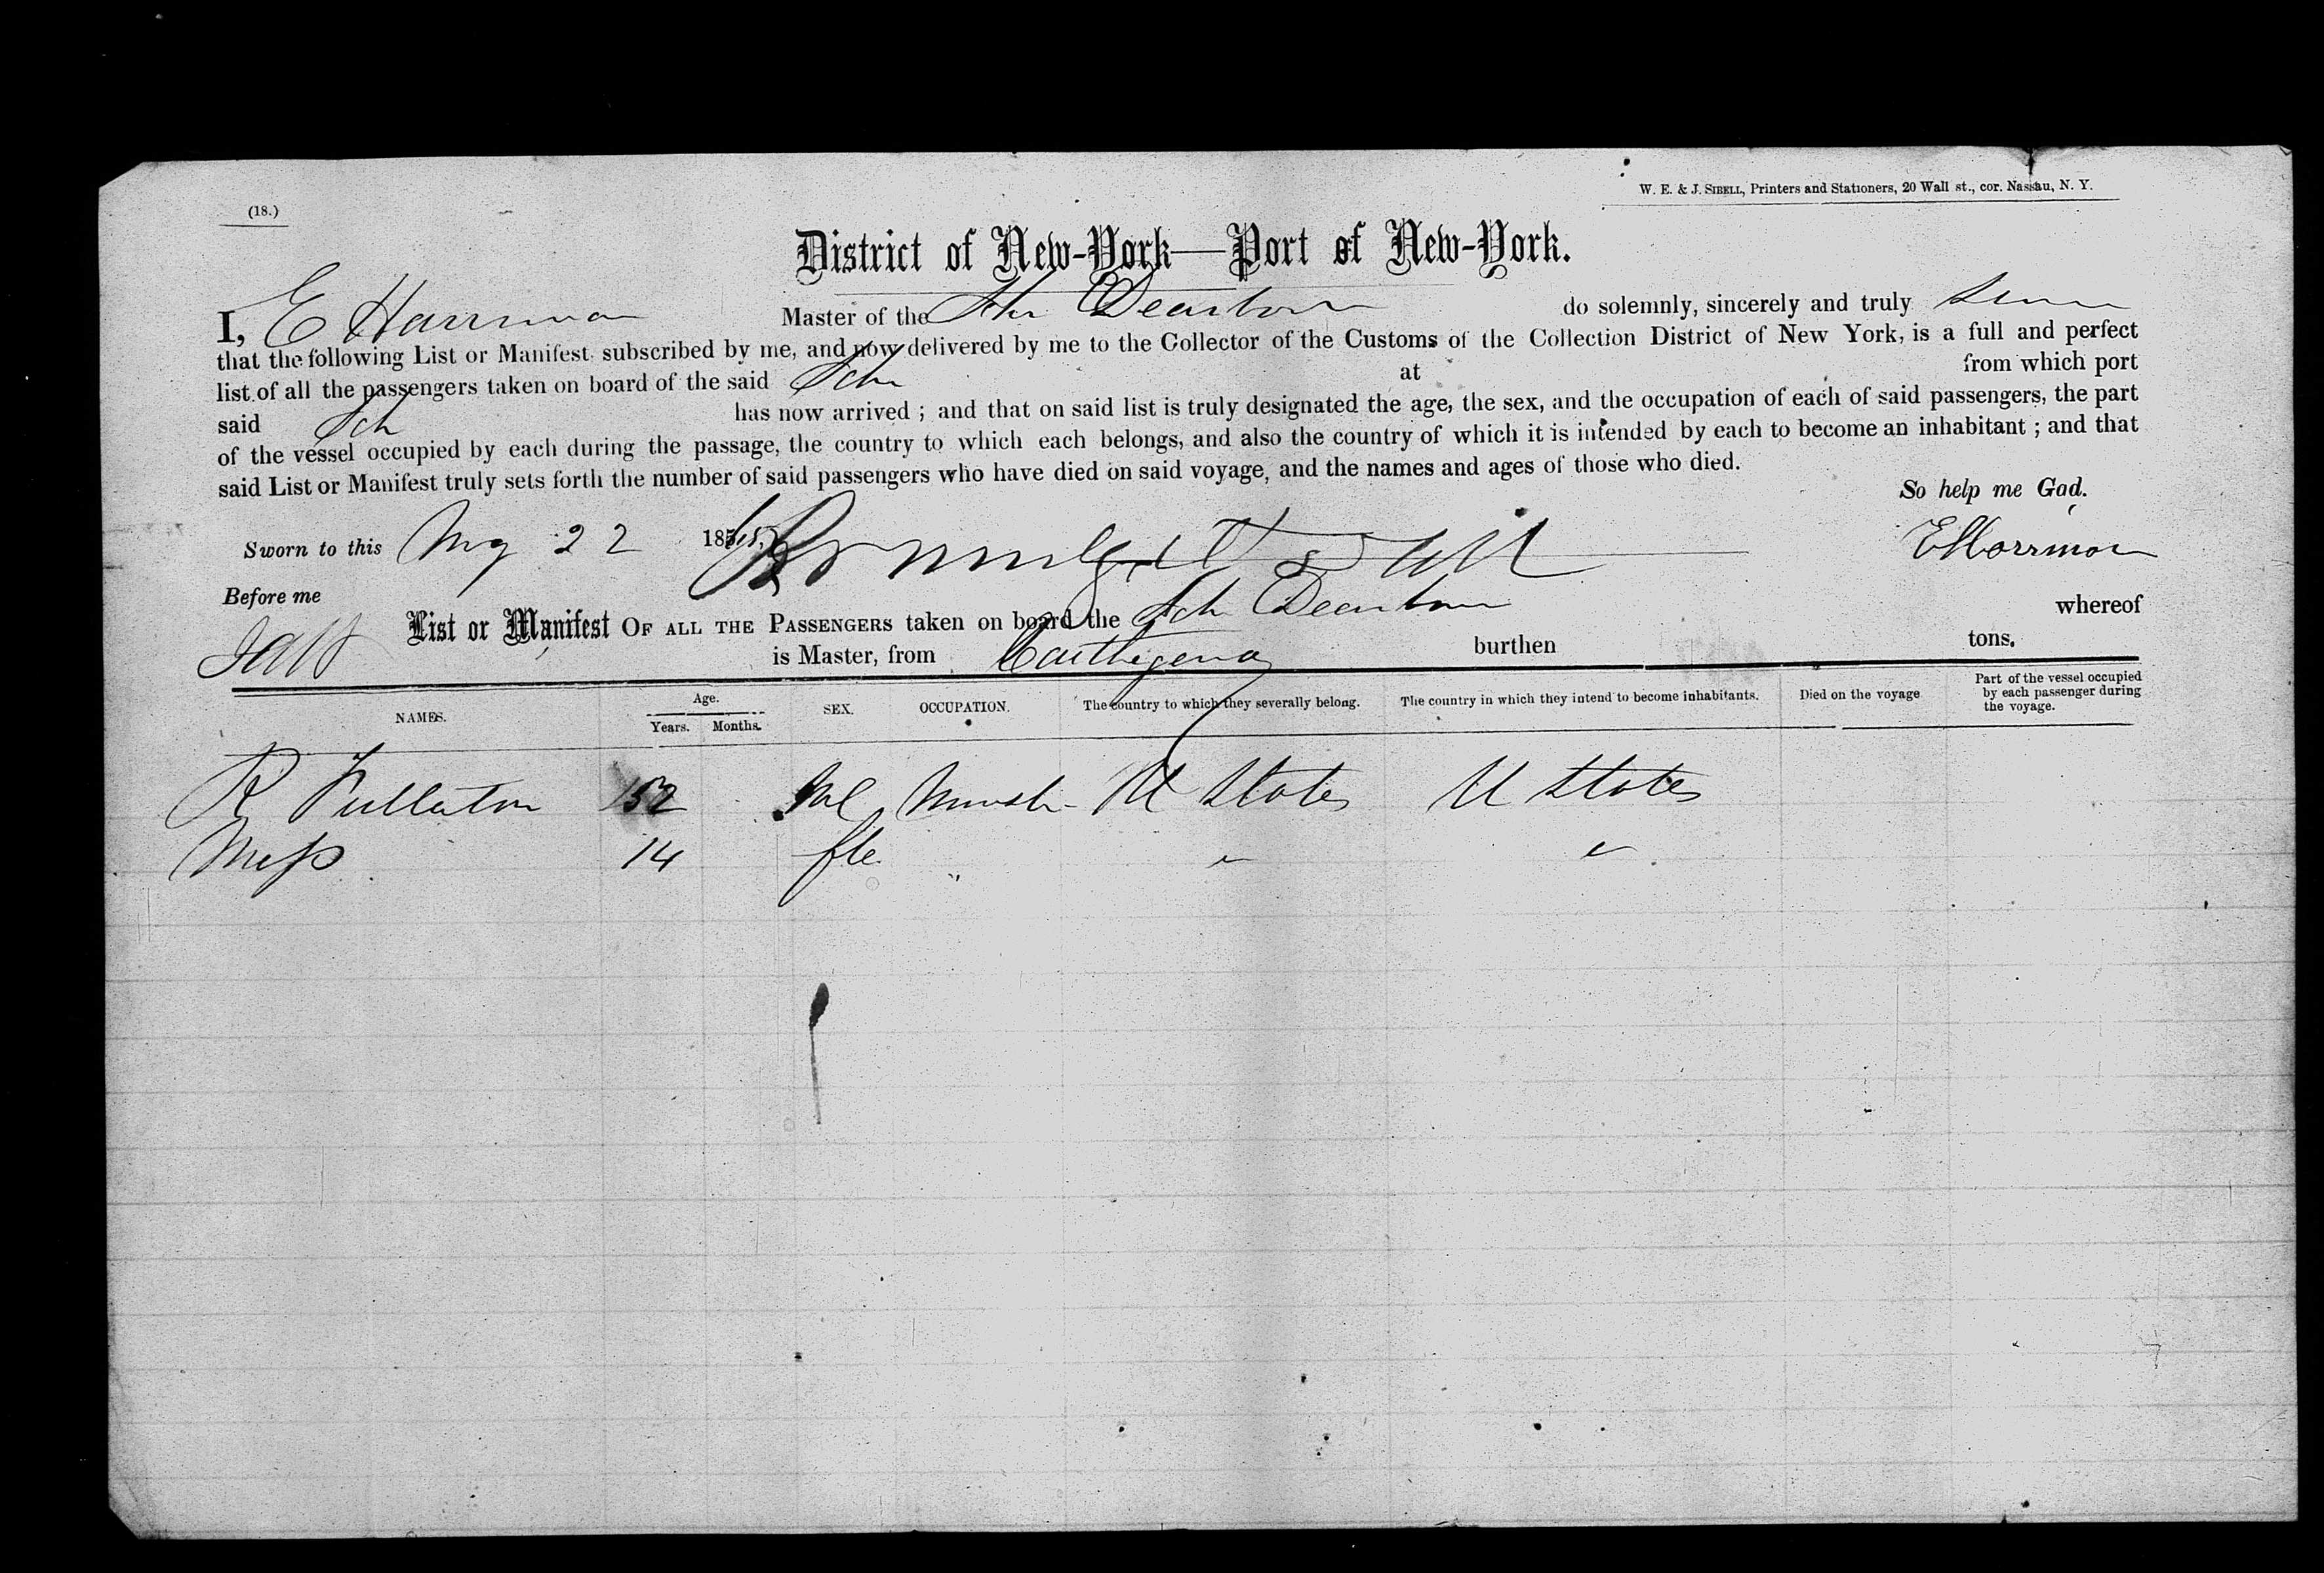 (18.)
W. E. & J. SIBELL, Printers and Stationers, 20 Wall st., cor. Nassau, N. Y.
District of New-York—Port of New-York.
I, E Harriman Master of the Sch Dearborn do solemnly, sincerely and truly swear
that the following List or Manifest subscribed by me, and now delivered by me to the Collector of the Customs of the Collection District of New York, is a full and perfect
list of all the passengers taken on board of the said Sch at from which port
said Sch has now arrived ; and that on said list is truly designated the age, the sex, and the occupation of each of said passengers, the part
of the vessel occupied by each during the passage, the country to which each belongs, and also the country of which it is intended by each to become an inhabitant ; and that
said List or Manifest truly sets forth the number of said passengers who have died on said voyage, and the names and ages of those who died.
So help me God.
Sworn to this 22 18 E Harriman
Before me
List or Manifest OF ALL THE PASSENGERS taken on board the Sch Dearborn whereof
is Master, from Carthegena burthen tons.
NAMES. Age. Years. Months. SEX. OCCUPATION. The country to which they severally belong. The country in which they intend to become inhabitants. Died on the voyage Part of the vessel occupied by each passenger during the voyage.
R Fullerton 52 Ml U States U States
Miss 14 fle " " "